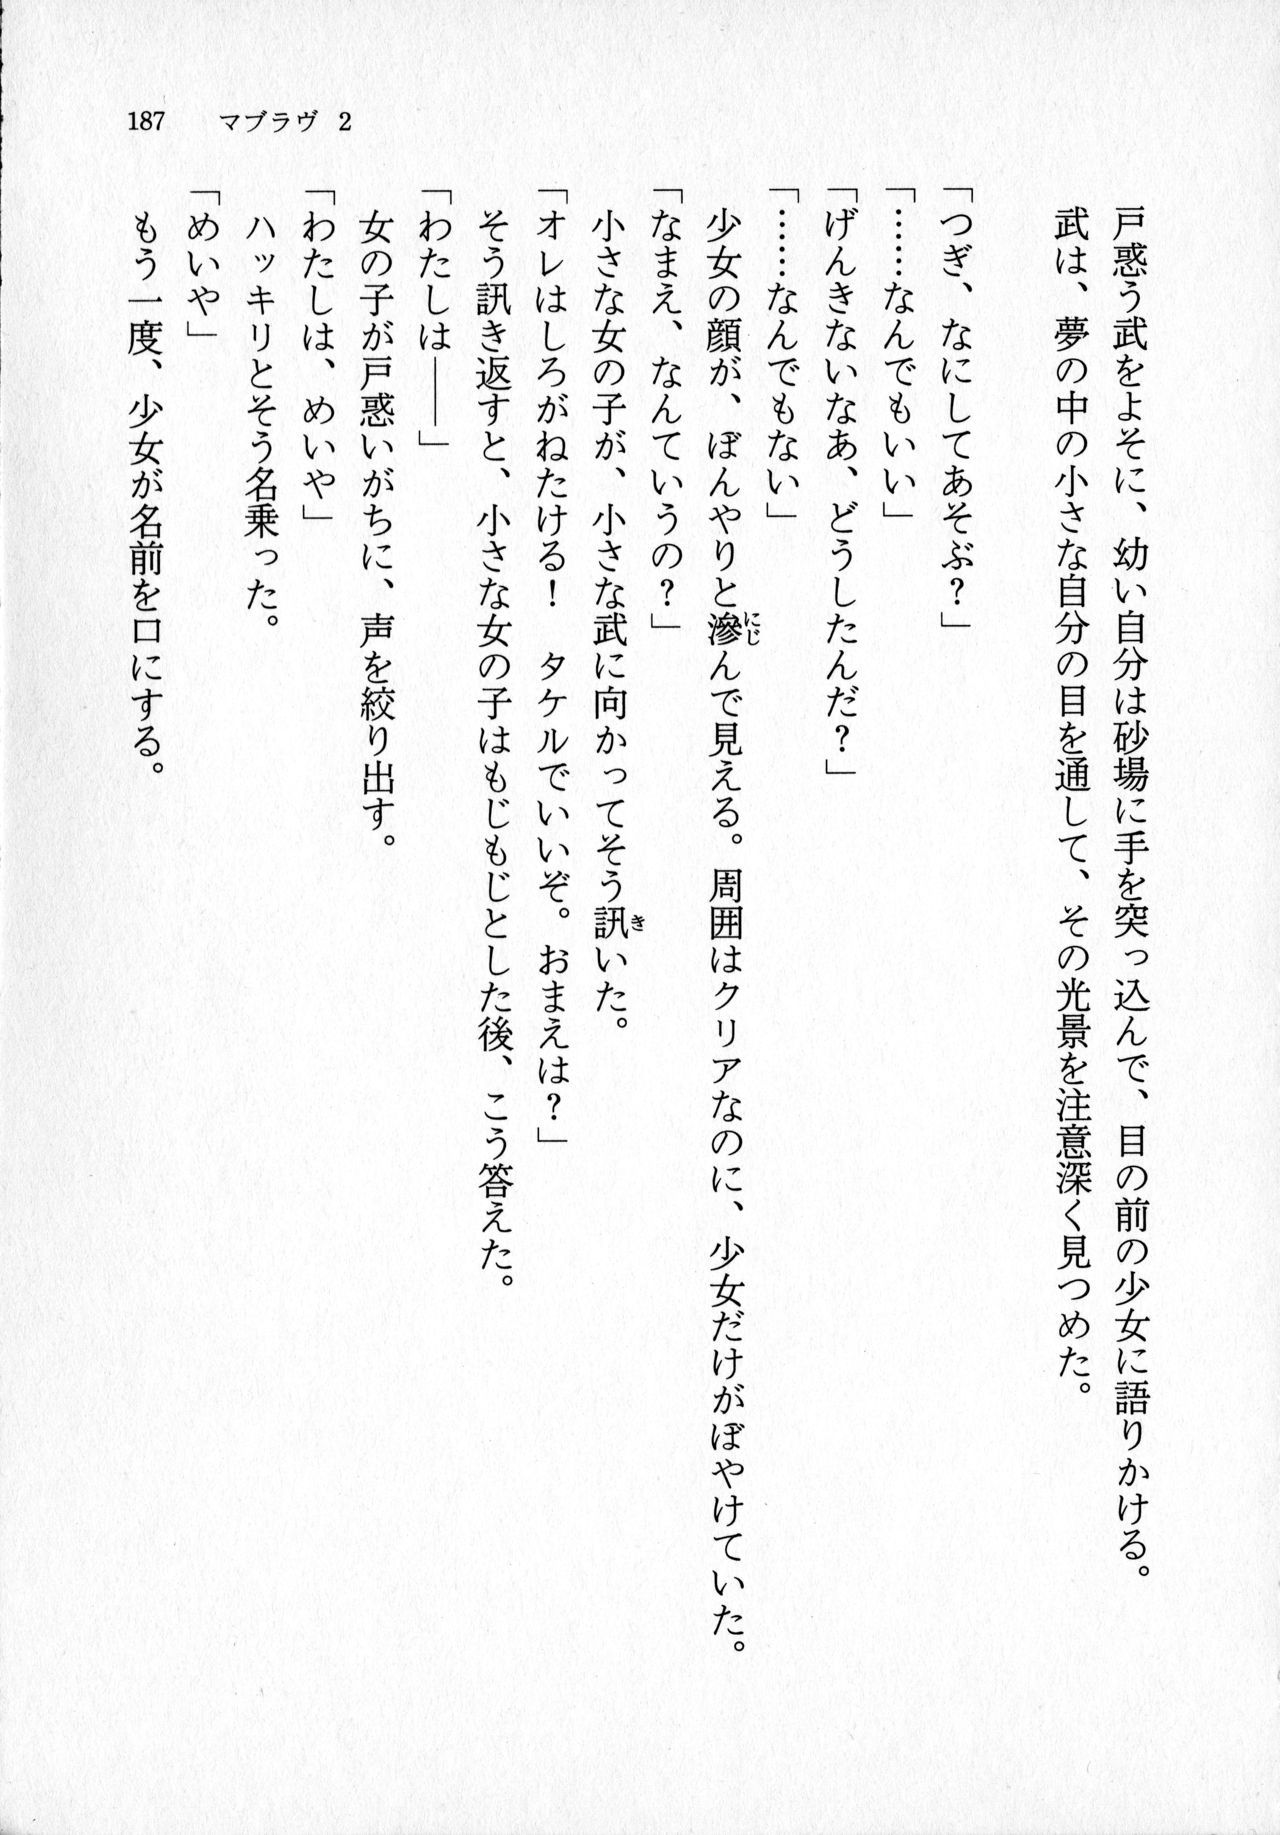 187 マブラヴ 2
戸惑う武をよそに、幼い自分は砂場に手を突っ込んで、目の前の少女に語りかける。
武は、夢の中の小さな自分の目を通して、その光景を注意深く見つめた。
「つぎ、なにしてあそぶ？」
「……なんでもいい」
「げんきないなあ、どうしたんだ？」
「……なんでもない」
少女の顔が、ぼんやりと滲んで見える。周囲はクリアなのに、少女だけがぼやけていた。
にじ
「なまえ、なんていうの？」
小さな女の子が、小さな武に向かってそう訊いた。
き
「オレはしろがねたける！　タケルでいいぞ。おまえは？」
そう訊き返すと、小さな女の子はもじもじとした後、こう答えた。
「わたしは――」
女の子が戸惑いがちに、声を絞り出す。
「わたしは、めいや」
ハッキリとそう名乗った。
「めいや」
もう一度、少女が名前を口にする。